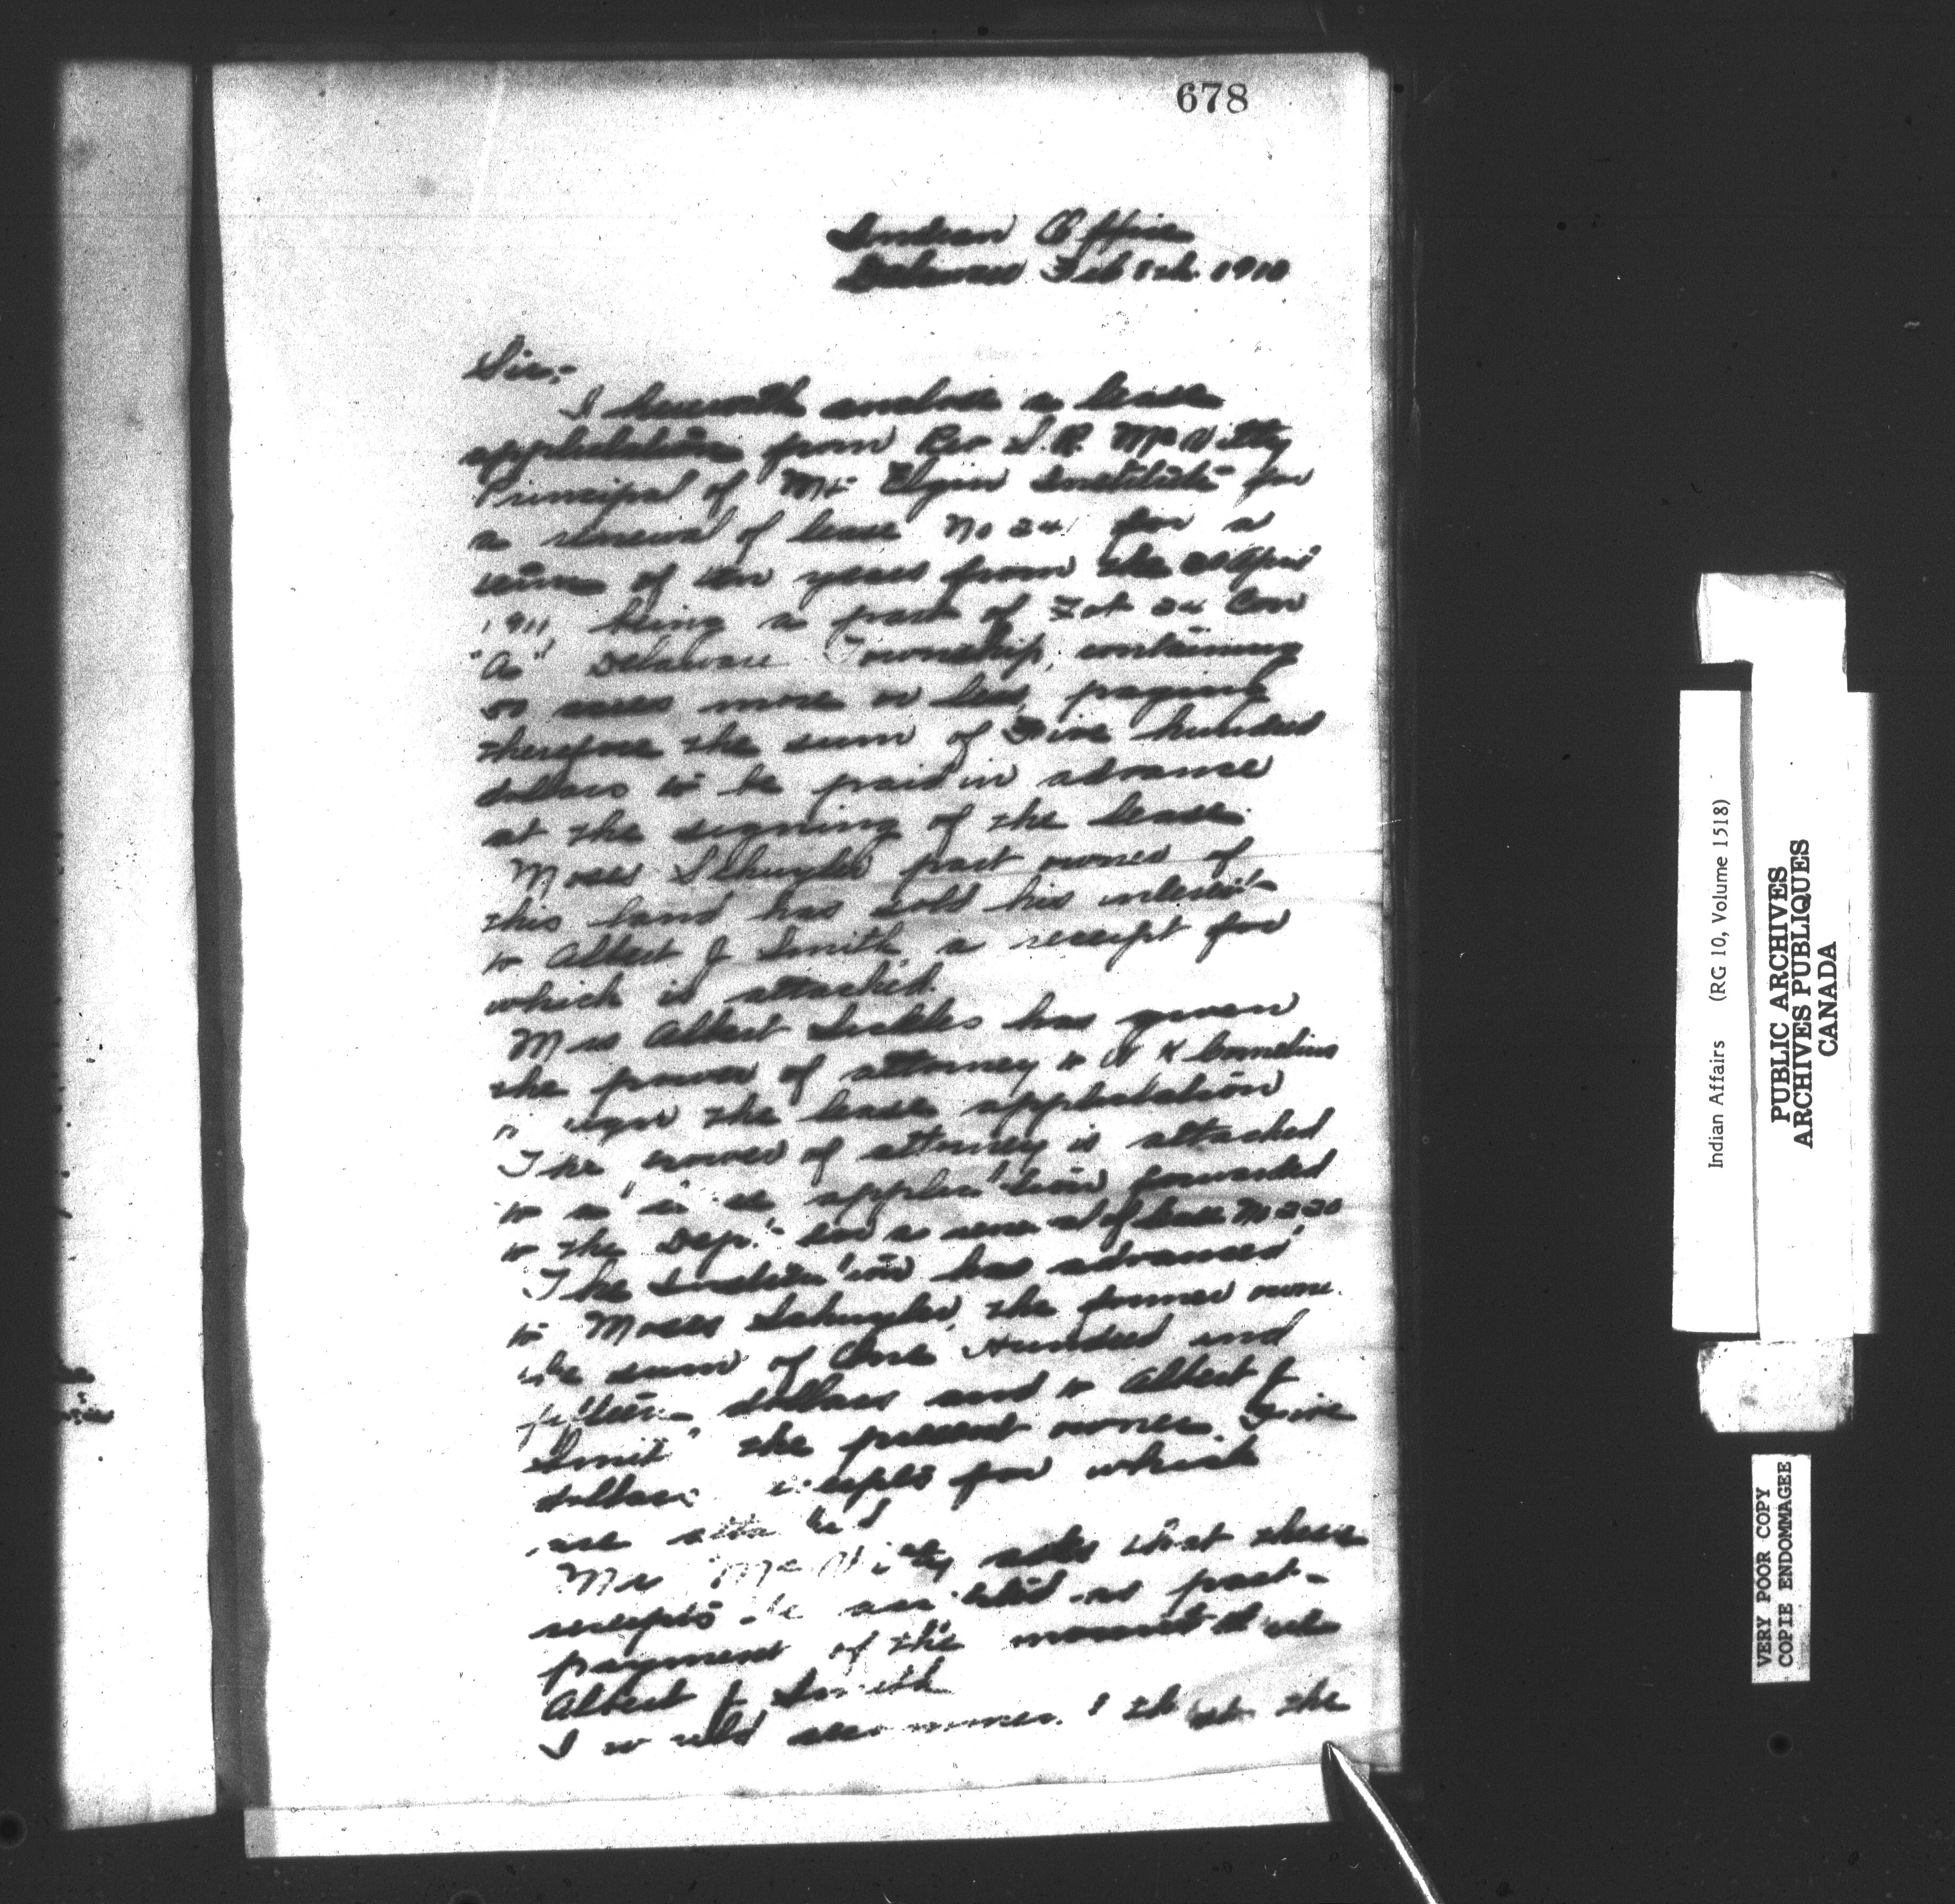 678
Indian Office
Delaware Feb 12th 1910
Sir:-
I herewith enclose a lease
application from Rev S.R. McVitty
Principal of Mt Elgin Institute for
a renewal of lease No 24 for a
term of ten years from the April
1911 being a part of Lot 24 Con
"A" Delaware Township, containing
acres more or less, paying
therefore the sum of Five hundred
dollars to be paid in advance
at the signing of the lease.
Moses Schuyler part owner of
this land has sold his interest
to Albert J Smith, a receipt for
which is attached.
Mrs Albert Sickles has given
the power of attorney to Cornelius
sign the lease application
The power of attorney is attached
to application forwarded
to the Dept. for a renewal of lease No 220
The Institution has advanced
to Moses Schuyler, the former owner
the sum of One Hundred and
fifteen dollars and to Albert J
Smith the present owner Five
dollars receipts for which
are attached
Mr McVitty asks that these
receipts be as part
payment of the amount
Albert J Smith
I would recommend that the
Indian Affairs (RG 10, Volume 1518)
PUBLIC ARCHIVES
ARCHIVES PUBLIQUES
CANADA
VERY POOR COPY
COPIE ENDOMMAGEE